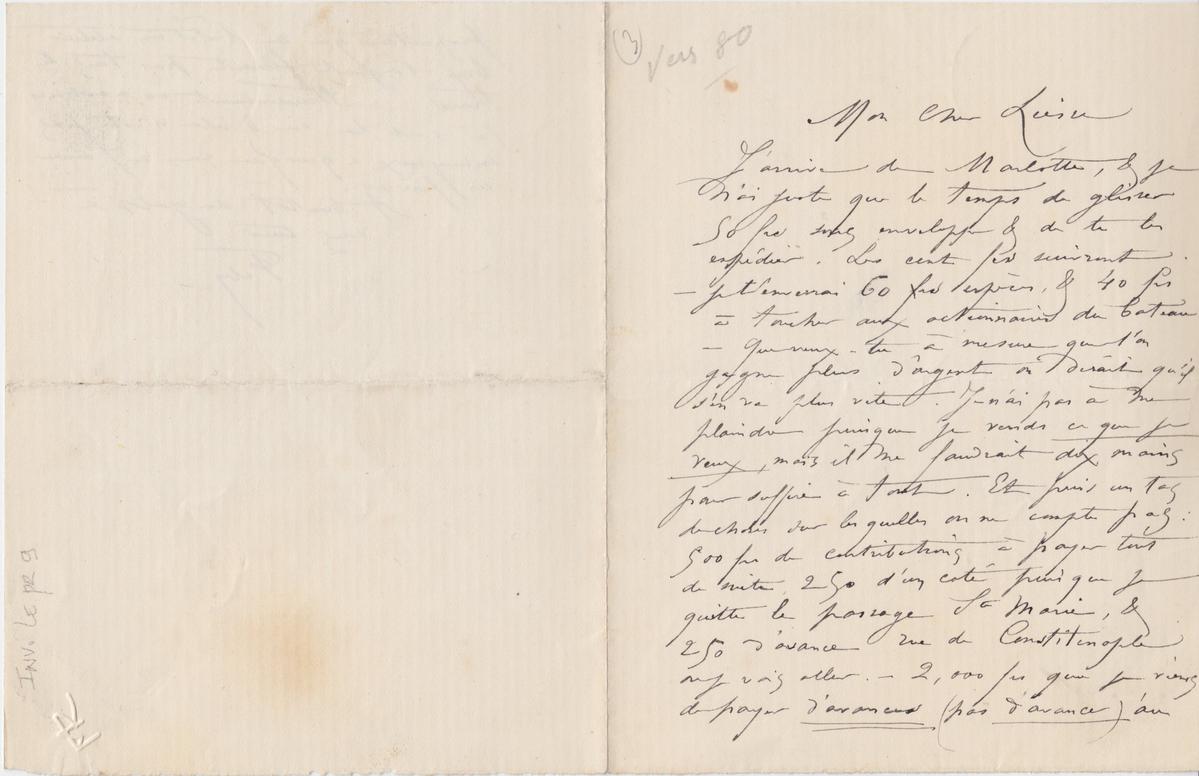 (3)
Vers 80
Mon Cher
J'arrive de Marlotte, & je
n'ai juste que le temps de glisser
50 frs sous enveloppe & de te les
expédier. Les cent frs suivront.
— Je t'enverrai 60 frs espèces, & 40 frs
à toucher aux actionnaires du bateau
— Que veux-tu à mesure que l'on
gagne plus d'argent on dirait qu'il
s'en va plus vite. Je n'ai pas à me
plaindre puisque je vends ce que je
veux, mais il me faudrait dix mains
pour suffire à tout. Et puis un tas
de choses sur lesquelles on ne compte pas:
500 frs de contributions à payer tout
de suite, 250 d'un coté puisque je
quitte le passage Ste Marie, &
250 d'avance rue de Constantinople
où je vais aller. — 2,000 frs que je viens
de payer d'avances (pas d'avance)
INV. LE PR 9